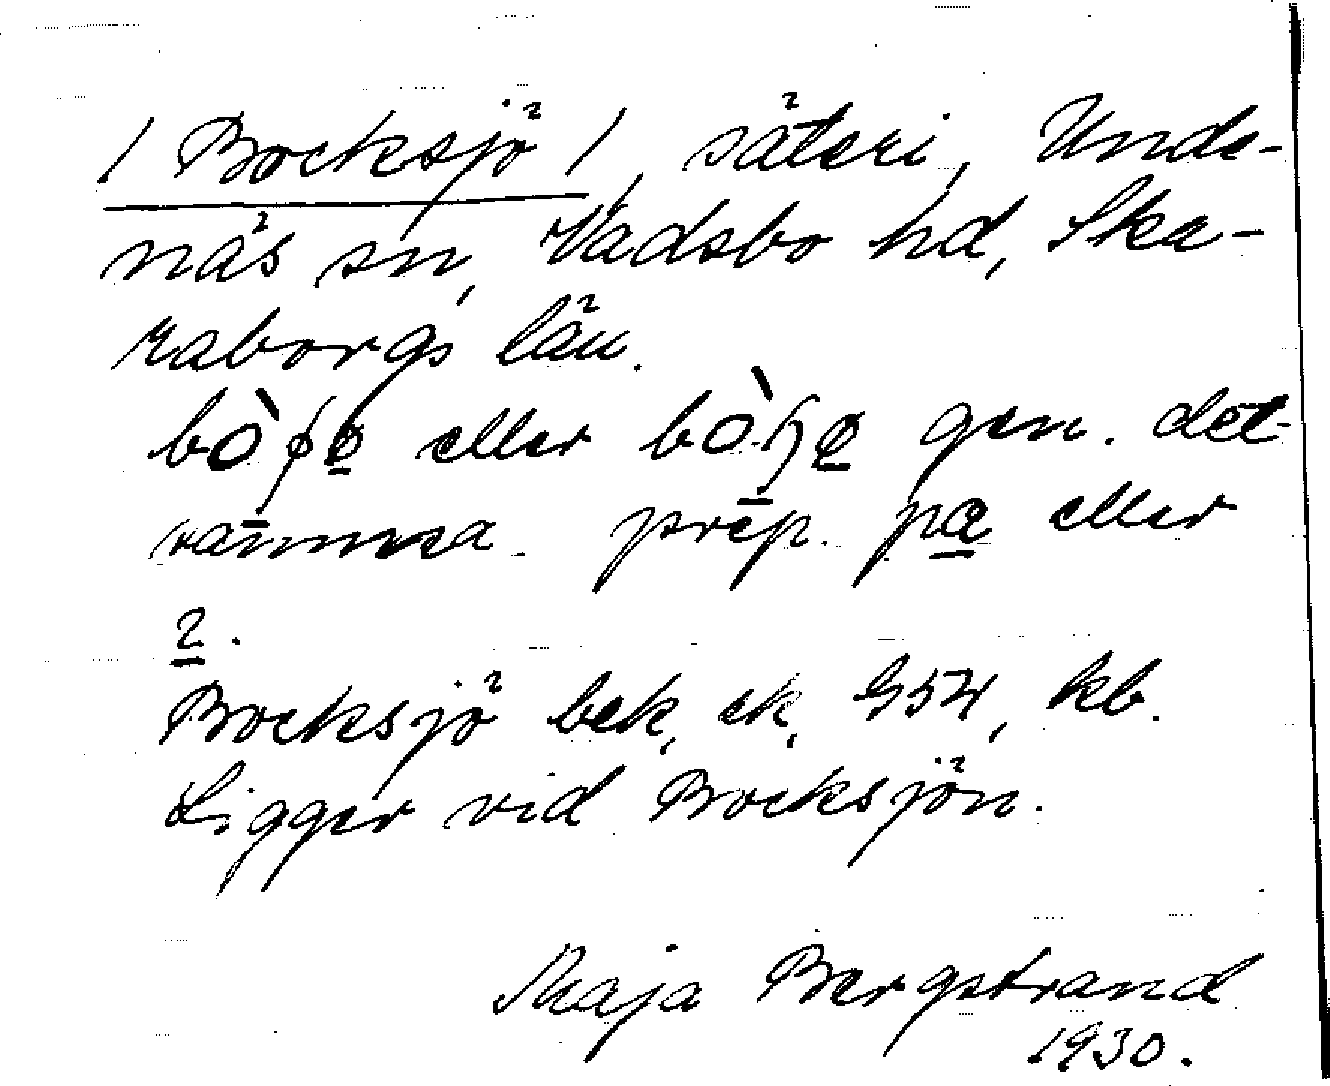 / Bocksjö /, säteri, Unde-
näs sn, Vadsbo hd, Ska-
raborgs län.
eller gen. det-
samma. prep. på eller
2.
Bocksjö bek, ek, 454, kb.
Ligger vid Bocksjön.
Maja Bergstrand
1930.